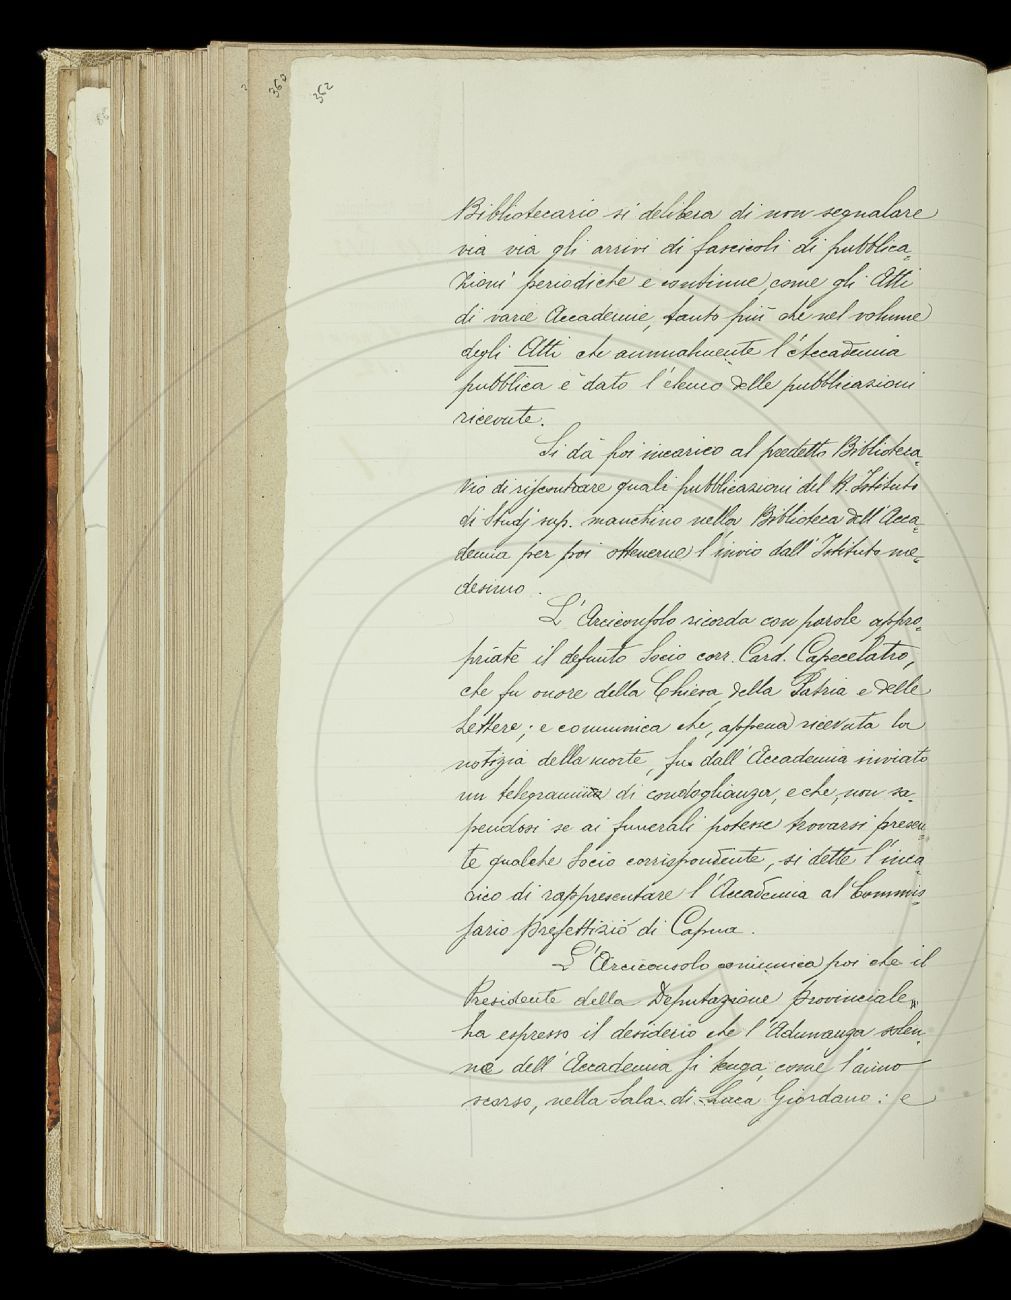 360
362
Bibliotecario si delibera di non segnalare
via via gli arrivi di fascicoli di pubblica-
zioni periodiche e continue, come gli Atti
di varie Accademie, tanto più che nel volume
degli Atti che annualmente l'Accademia
pubblica è dato l'elenco delle pubblicazioni
ricevute.
Si dà poi incarico al predetto Biblioteca-
rio di riscontrare quali pubblicazioni del R. Istituto
di Studj sup. manchino nella Biblioteca dell'Acca-
demia per poi ottenerne l'invio dall'Istituto me-
desimo.
L'Arciconsolo ricorda con parole appro-
priate il defunto Socio corr. Card. Capecelatro,
che fu onore della Chiesa, della Patria e delle
Lettere; e comunica che, appena ricevuta la
notizia della morte, fu dall'Accademia inviato
un telegramma di condoglianza, e che, non sa-
pendosi se ai funerali potesse trovarsi presen-
te qualche Socio corrispondente, si dette l'inca-
rico di rappresentare l'Accademia al Commis-
sario prefettizio di Capua.
L'Arciconsolo comunica poi che il
Presidente della Deputazione provinciale
ha espresso il desiderio che l'Adunanza solen-
ne dell'Accademia si tenga, come l'anno
scorso, nella Sala di Luca Giordano: e